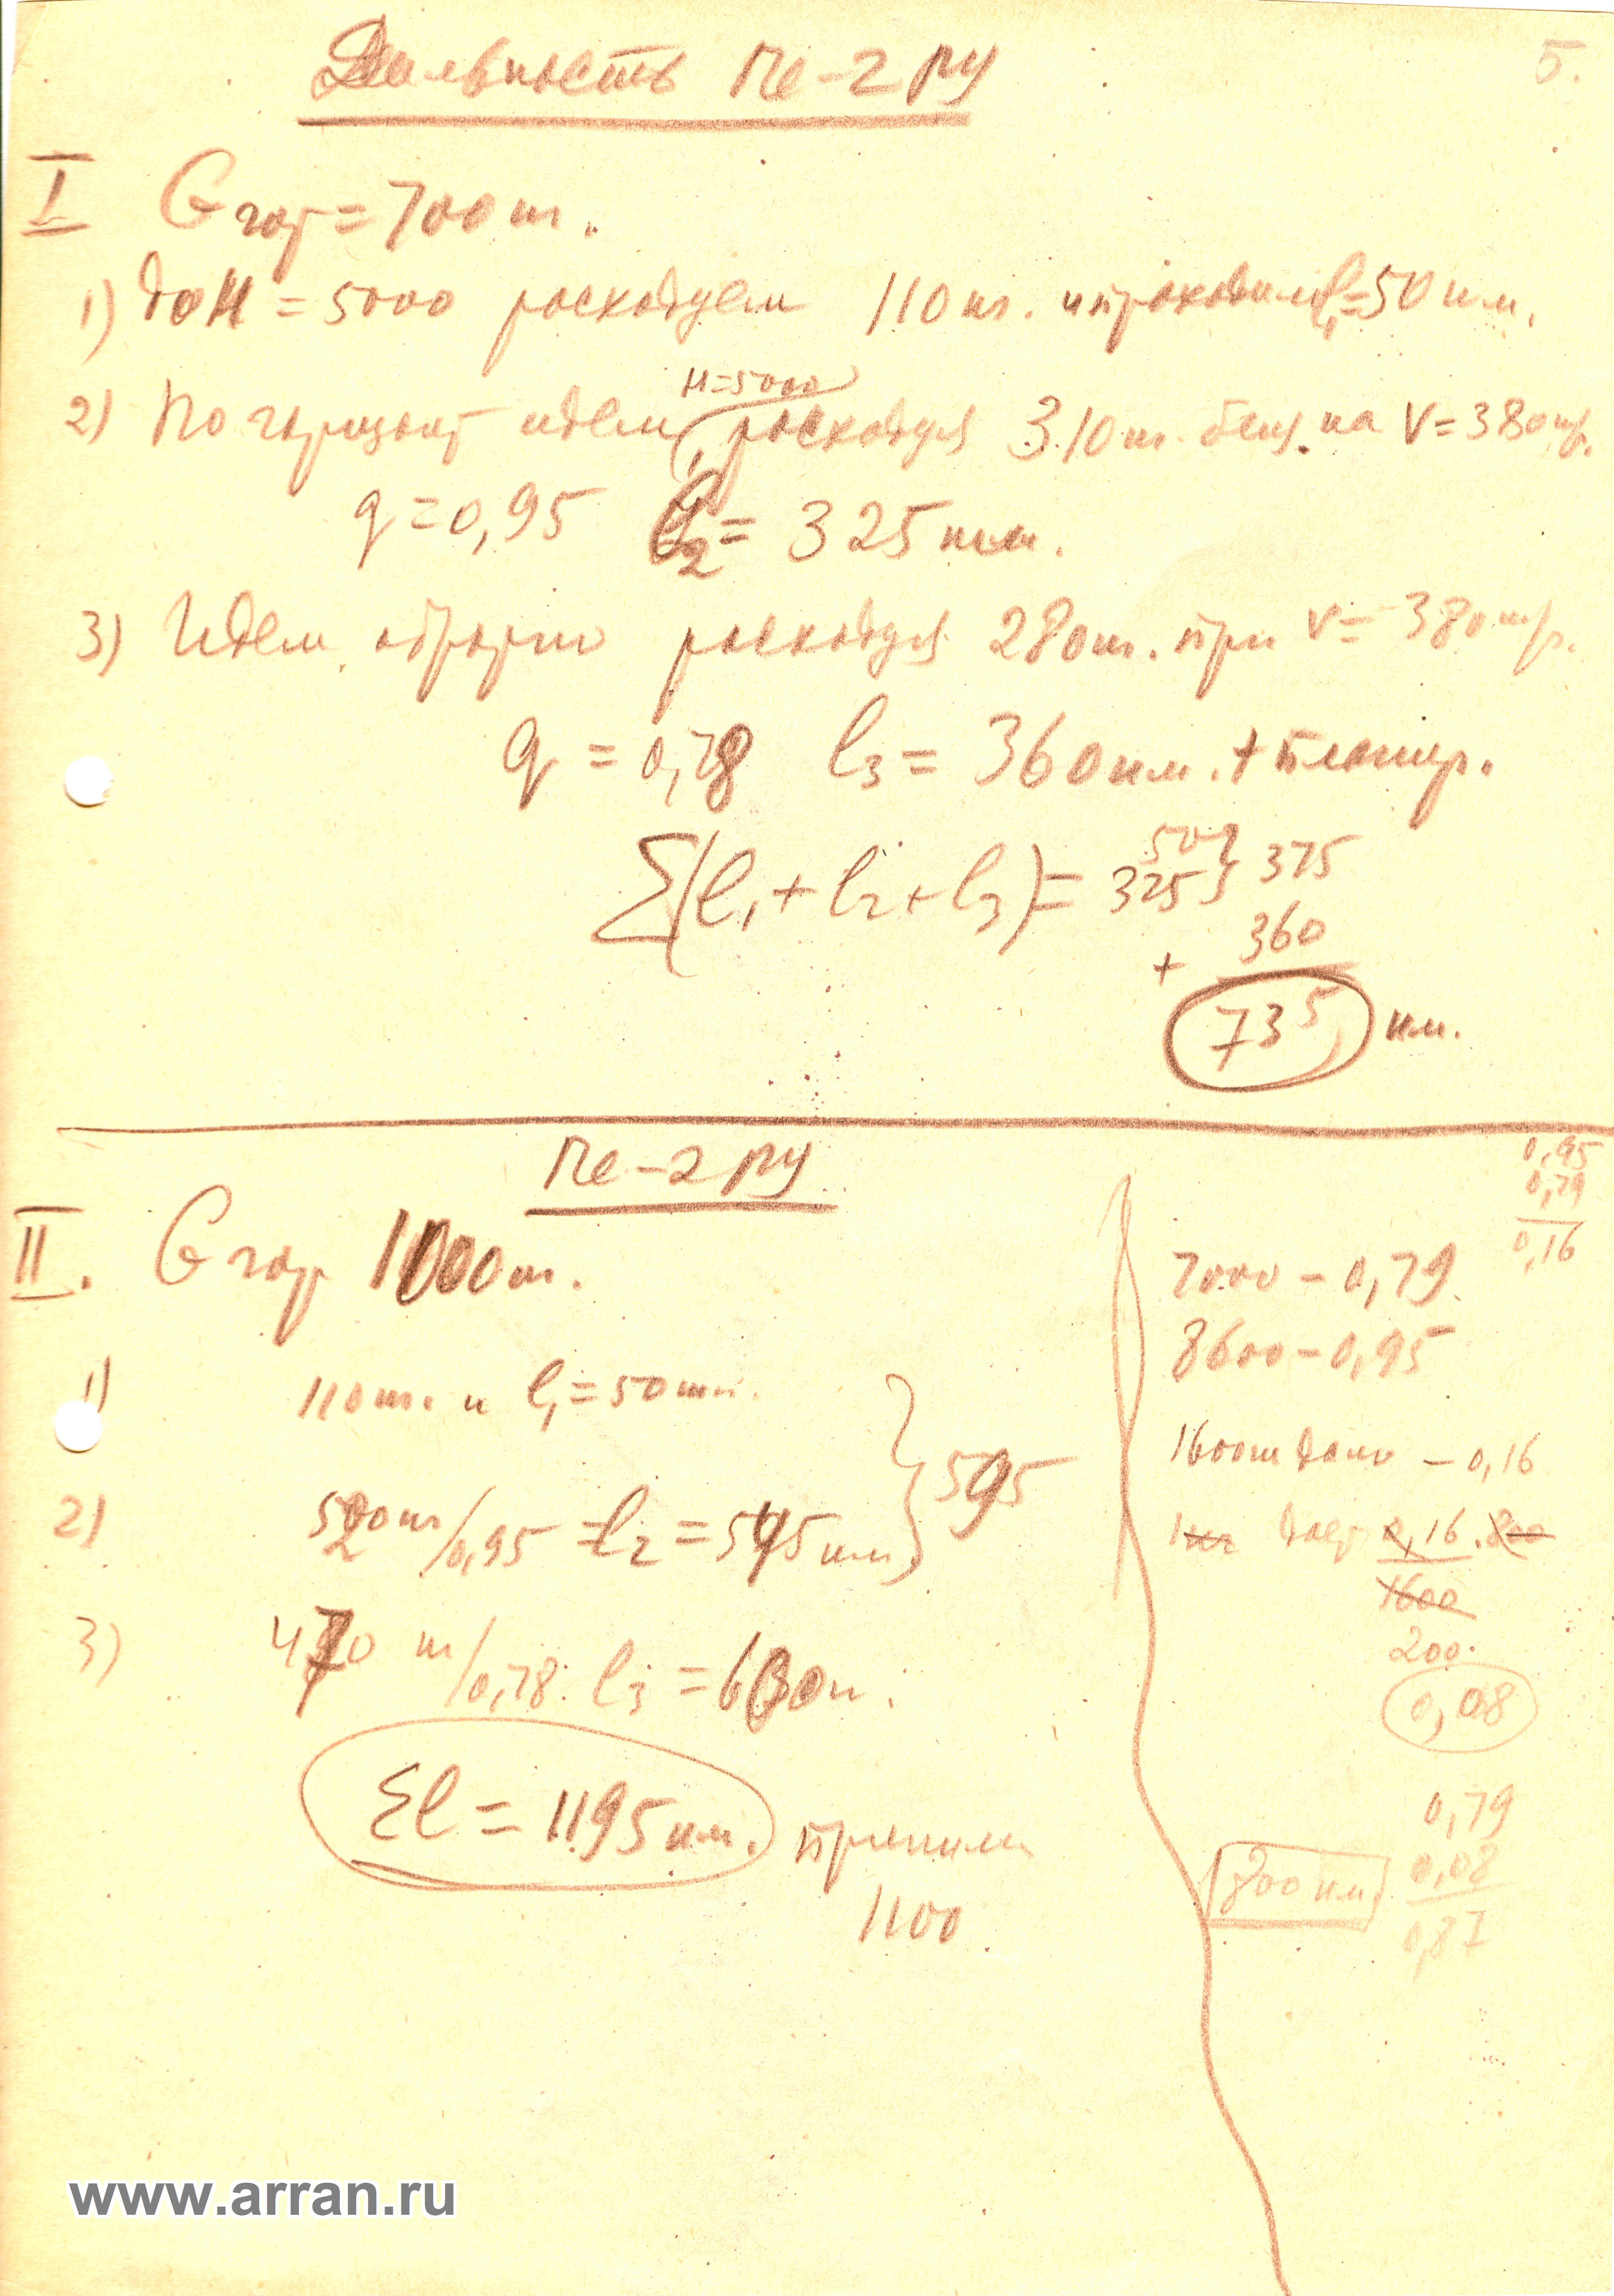 Дальность Пе-2РУ
5.
I Gгор = 700 кг.
1) До H = 5000 расходуем 110 кг. и проходим l₁=50 км.
H=5000
2) По горизонт идем, расходуя 310 кг. бенз. на V = 380 кмр.
q = 0,95 l₂ = 325 км.
3) Идем обратно расходуя 280 кг. при V = 380 км/р.
q = 0,78 l₃ = 360 км. + планир.
Σ(l₁ + l₂ + l₃) = 50 325 } 375
+ 360
735 км.
Пе-2РУ
II. Gгор 1000 кг.
1) 110 кг. и l₁ = 50 км.
2) 520 кг/0,95 = l₂ = 545 км } 595
3) 470 кг/0,78. l₃ = 600 к.
Σl = 1195 км. примем
1100
0,95
0,79
0,16
7000 – 0,79
8600 – 0,95
1600 кг дано – 0,16
1 кг дает 0,16 . 800
1600
200
0,08
0,79
800 км. 0,08
0,87
www.arran.ru